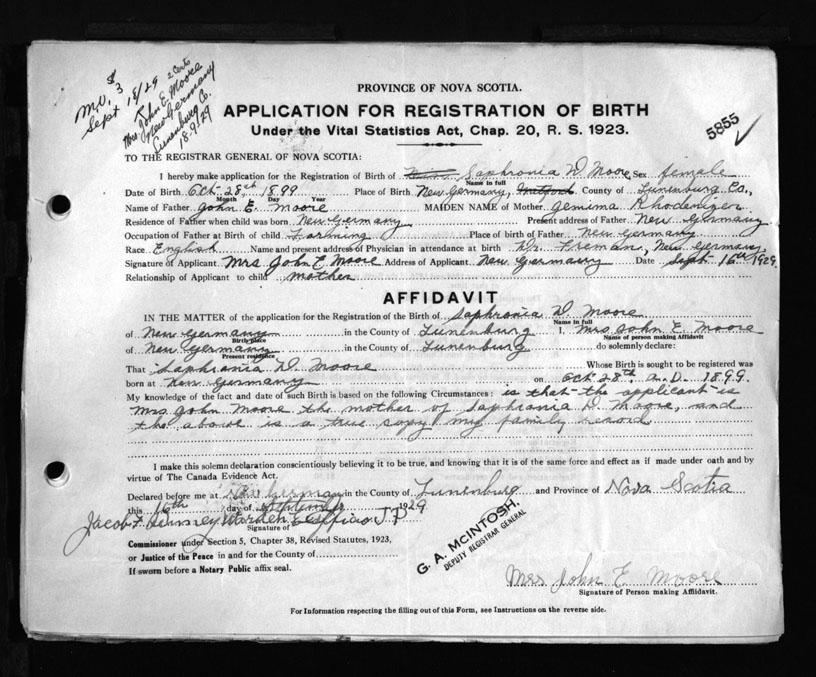 M.O. $3 2 Certs
Sept 18/29
Mrs John E. Moore
New Germany
Lunenburg Co.
18.9.29
PROVINCE OF NOVA SCOTIA.
APPLICATION FOR REGISTRATION OF BIRTH
Under the Vital Statistics Act, Chap. 20, R. S. 1923.
5855 ✓
TO THE REGISTRAR GENERAL OF NOVA SCOTIA:
I hereby make application for the Registration of Birth of Saphronia D. Moore Sex female
Name in full
Date of Birth Oct. 28th 1899 Place of Birth New Germany, County of Lunenburg Co.,
Month Day Year
Name of Father John E. Moore MAIDEN NAME of Mother Jemima Rhodenizer
Residence of Father when child was born New Germany Present address of Father New Germany
Occupation of Father at Birth of child Farming Place of birth of Father New Germany
Race English Name and present address of Physician in attendance at birth Dr. Freman, New Germany
Signature of Applicant Mrs John E Moore Address of Applicant New Germany Date Sept 16th 1929.
Relationship of Applicant to child mother
AFFIDAVIT
IN THE MATTER of the application for the Registration of the Birth of Saphronia D. Moore
Name in full
of New Germany in the County of Lunenburg I, Mrs John E. Moore
Birth place Name of person making Affidavit
of New Germany in the County of Lunenburg do solemnly declare:
Present residence
That Saphronia D. Moore Whose Birth is sought to be registered was
born at New Germany on Oct 28th. A.D. 1899.
My knowledge of the fact and date of such Birth is based on the following Circumstances: is that the applicant is
Mrs John Moore the mother of Saphronia D. Moore, and
the above is a true copy my family record
I make this solemn declaration conscientiously believing it to be true, and knowing that it is of the same force and effect as if made under oath and by
virtue of The Canada Evidence Act.
Declared before me at New Germany in the County of Lunenburg and Province of Nova Scotia
this 16th day of September 1929
Jacob F. Warden Exofficio J.P.
Signature of
Commissioner under Section 5, Chapter 38, Revised Statutes, 1923,
or Justice of the Peace in and for the County of
If sworn before a Notary Public affix seal.
G. A. McINTOSH,
DEPUTY REGISTRAR GENERAL
Mrs John E Moore
Signature of Person making Affidavit.
For Information respecting the filling out of this Form, see Instructions on the reverse side.